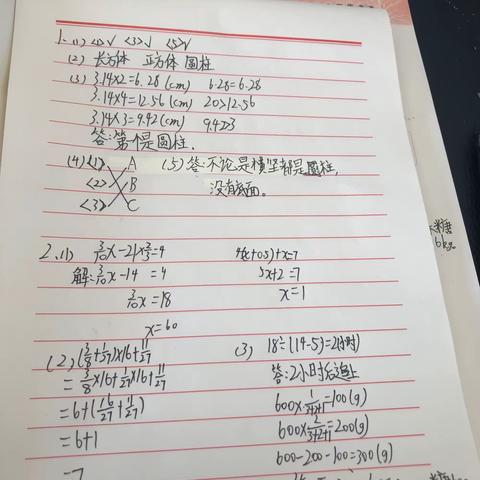 1.(1) <1>√ <3>√ <5>√
(2) 长方体 正方体 圆柱
(3) 3.14×2=6.28(cm) 6.28=6.28
3.14×4=12.56(cm) 20>12.56
3.14×3=9.42(cm) 9.42>3
答:第一个是圆柱.
(4) <1> A
<2> B
<3> C
(5) 答:不论是横竖都是圆柱,
没有底面。
2.(1) 3/10x-21×2/3=4
解:3/10x-14=4
3/10x=18
x=60
4(x+0.5)+x=7
5x+2=7
x=1
(2) (3/8+1/27)×16+11/27
=3/8×16+1/27×16+11/27
=6+(16/27+11/27)
=6+1
=7
(3) 18÷(14-5)=2(小时)
答:2小时后追上
600×1/3+2+1=100(g)
600×2/3+2+1=200(g)
600-200-100=300(g)
糖